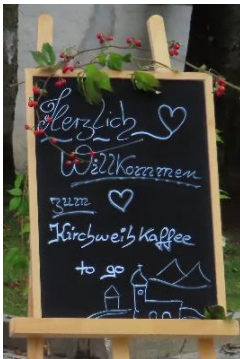 Herzlich
Willkommen
zum
Kirchweihkaffee
to go